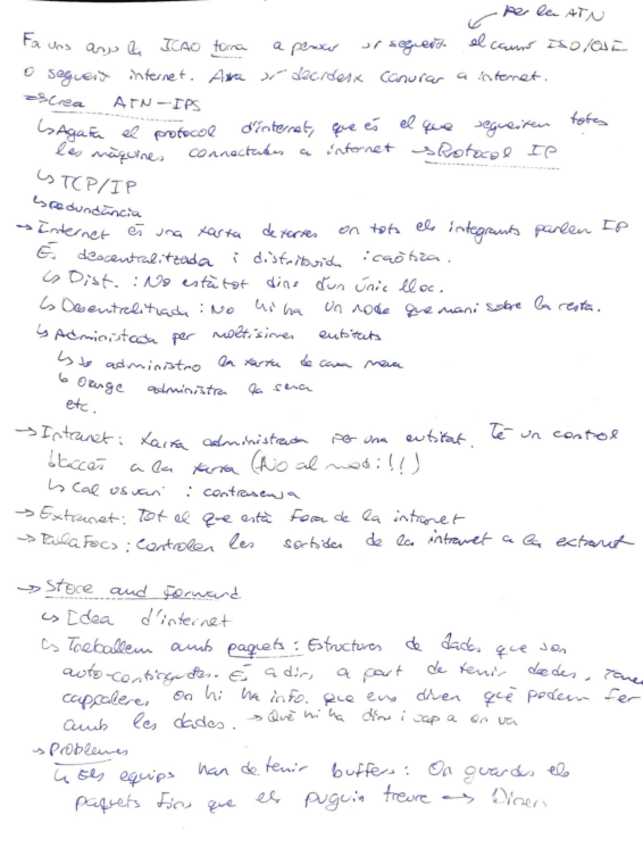 per la ATN
Fa uns anys la ICAO torna a pensar si segueix el camí ISO/OSI
o segueix internet. Ara sí decideix canviar a internet.
⇒ Crea ATN-IPS
↳ Agafa el protocol d'internet, que és el que segueixen totes
les màquines connectades a internet → Protocol IP
↳ TCP/IP
↳ redundància
→ Internet és una xarxa de xarxes on tots els integrants parlen IP
És descentralitzada i distribuida i caòtica.
↳ Dist. : No està tot dins d'un únic lloc.
↳ Desentralitzada : No hi ha un node que mani sobre la resta.
↳ Administrada per moltísimes entitats
↳ Jo administro la xarxa de casa meva
↳ Orange administra la seva
etc.
→ Intranet : Xarxa administrada per una entitat. Té un control
d'accés a la xarxa (No al medi!!)
↳ Cal usuari i contrasenya
→ Extranet : Tot el que està fora de la intranet
→ Tallafocs : Controlen les sortides de la intranet a la extranet
→ Store and Forward
↳ Idea d'internet
↳ Treballem amb paquets : Estructures de dades que son
auto-contingudes. És a dir, a part de tenir dades,
capçaleres on hi ha info. que ens diven què podem fer
amb les dades. → Què hi ha dins i cap a on va
→ Problemes
↳ Els equips han de tenir buffers : On guardes els
paquets fins que els puguin treure → Diners